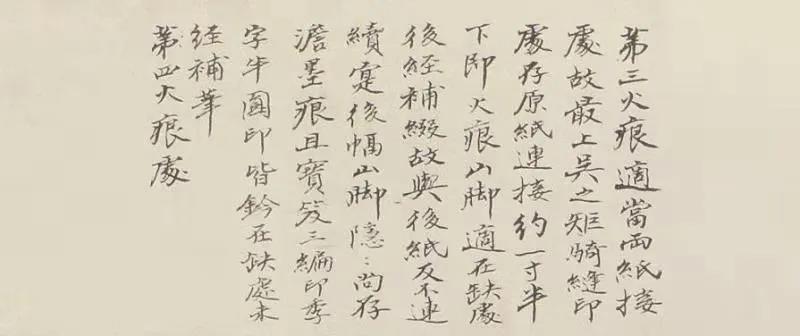 第三火痕適當兩紙接
處故最上吴之矩騎縫印
處存原紙連接約一寸半
下即火痕山脚適在缺處
後經補綴故與後紙反不連
續寔後幅山脚隱:尚存
澹墨痕且寶笈三編印季
字半圓印皆鈐在缺處未
經補筆
第四火痕處